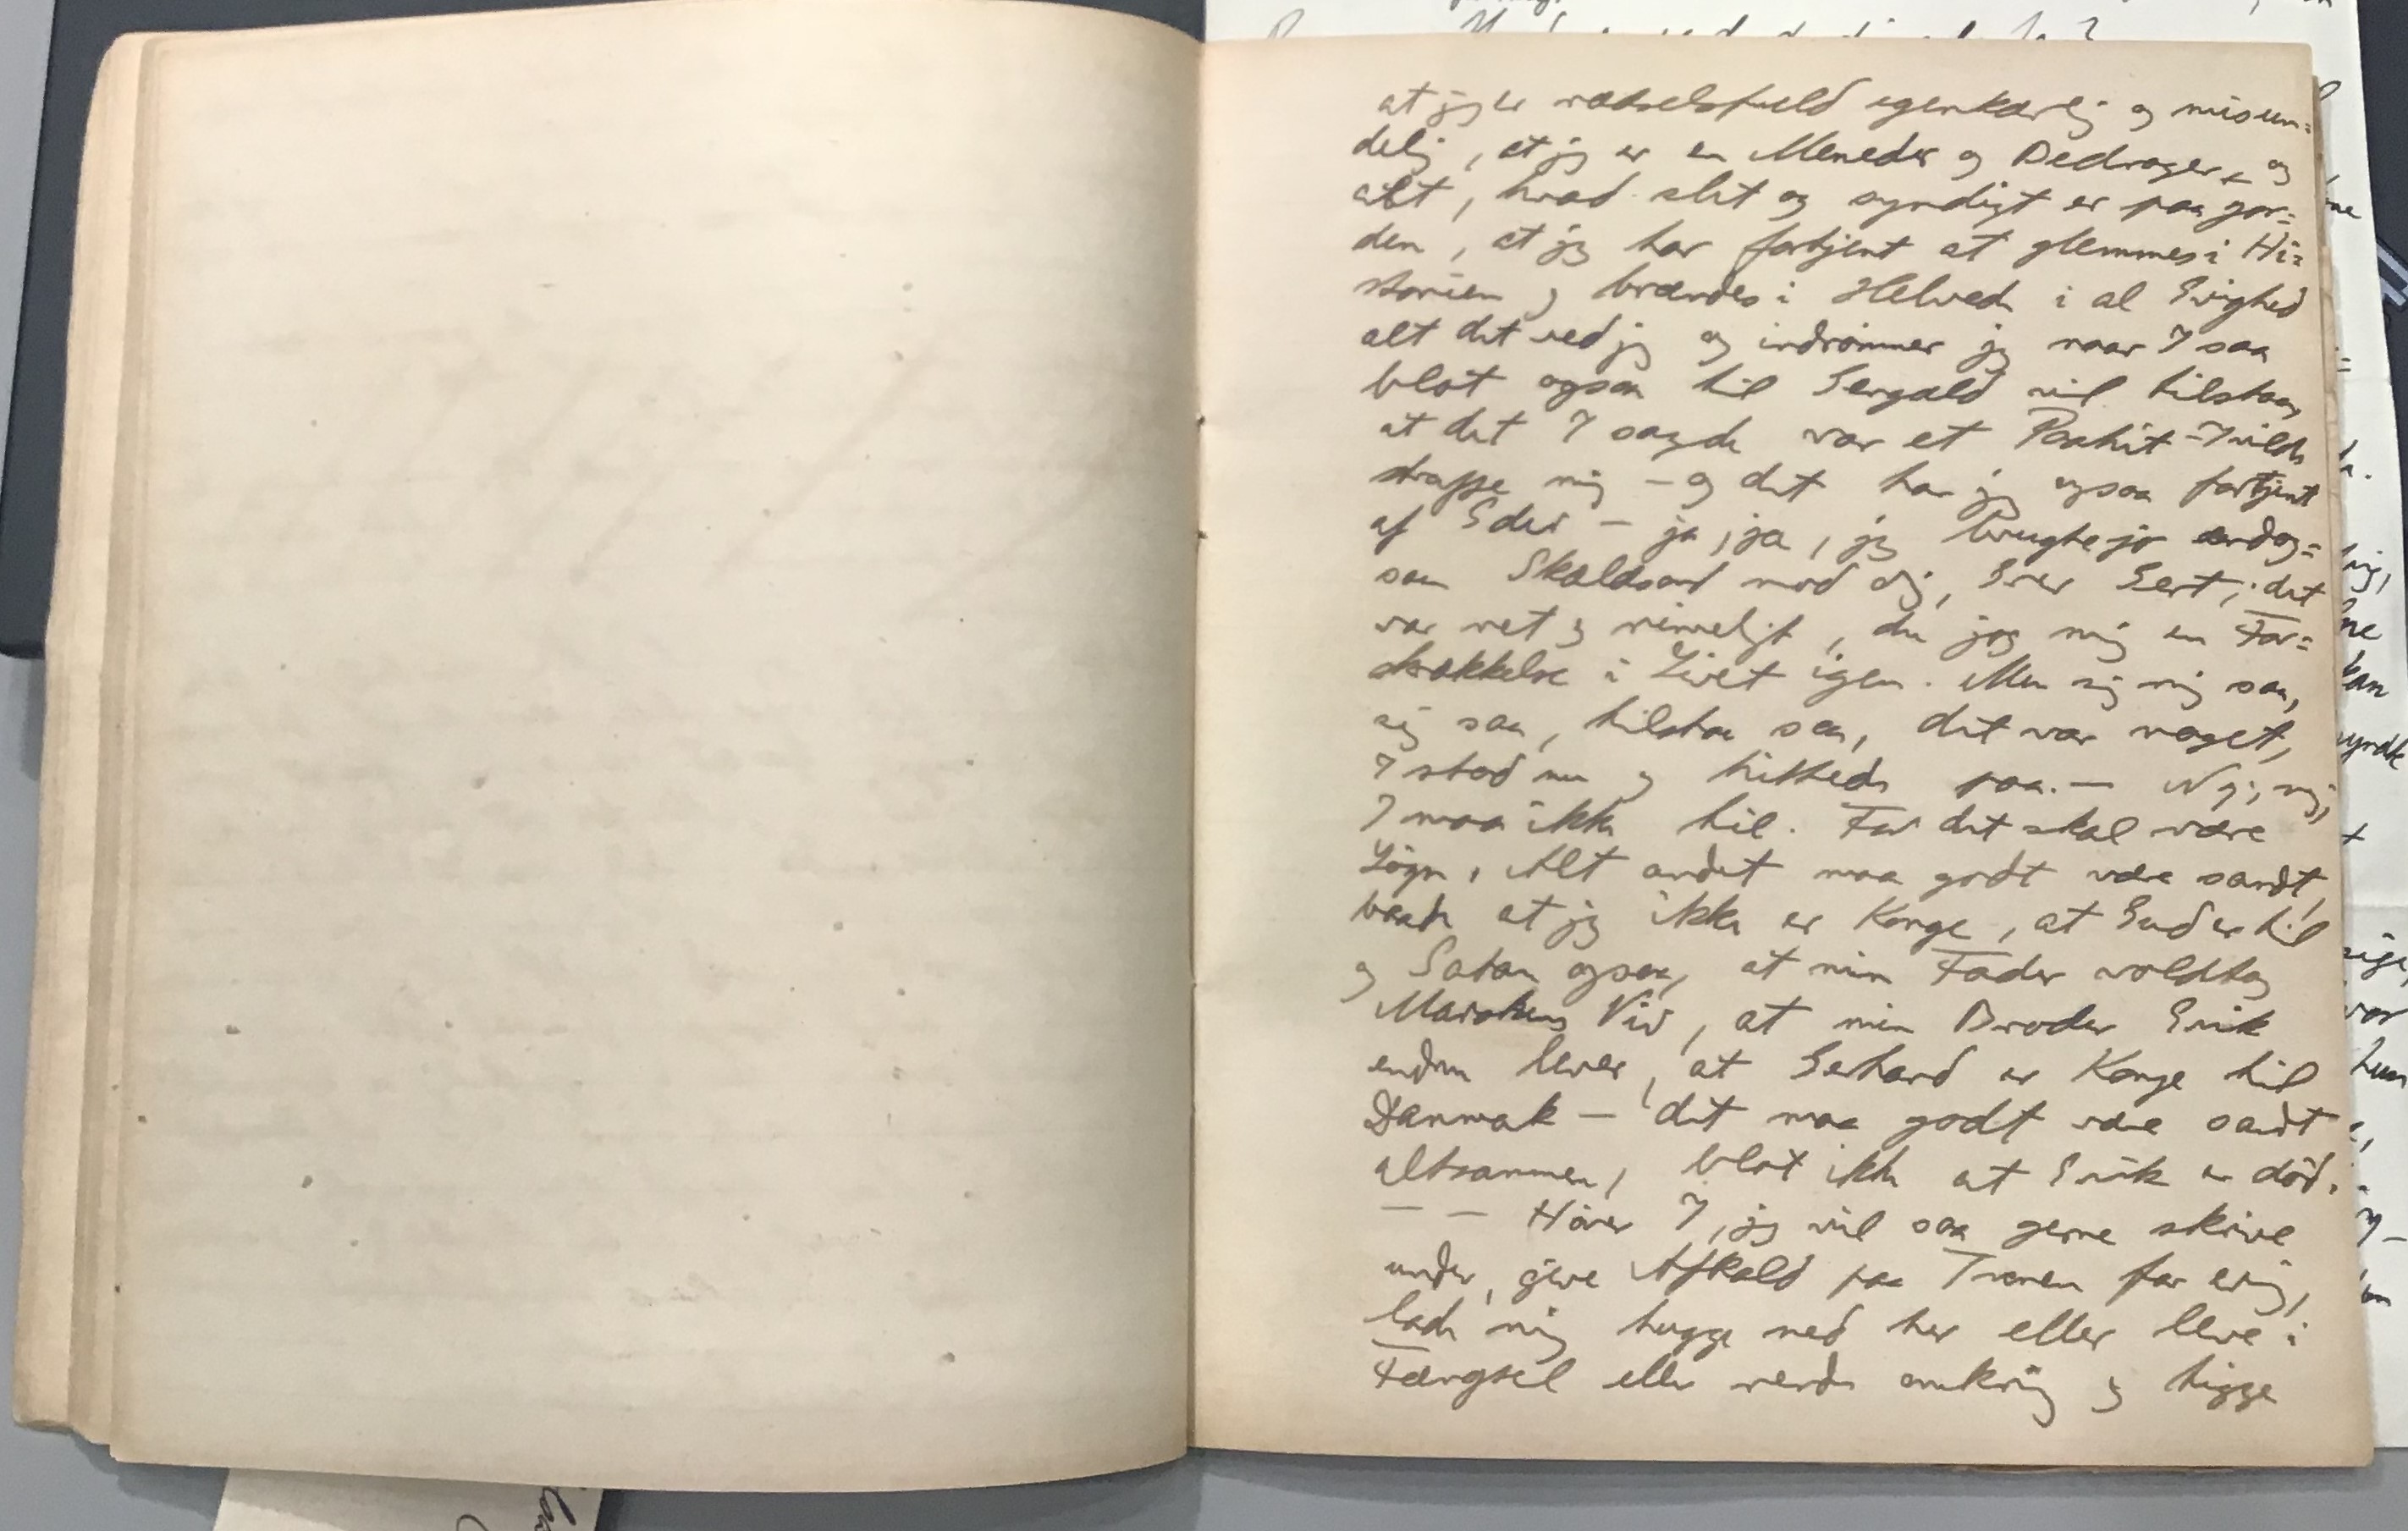 at jeg er rædselsfuld egenkærlig og misun=
delig, at jeg er en Meneder og Bedrager, og
alt, hvad slet og syndigt er paa Jor=
den, at jeg har fortjent at glemmes i Hi=
storien og brændes i Helvede i al Evighed
alt det ved jeg og indrömmer jeg naar I saa
blot ogsaa til Gengæld vil tilstaa,
at det I sagde var et Paahit – I vilde
straffe mig – og det har jeg ogsaa fortjent
af Eder – ja, ja, jeg brugte jo endog=
saa Skældsord mod dig, Grev Gert, det
var ret og rimeligt, du jog mig en For=
skrækkelse i Livet igen. Men sig mig saa,
sig saa, tilstaa saa, det var noget,
I stod nu og hittede paa. – Nej, nej,
I maa ikke tie. For det skal være
Lögn. Alt andet maa godt være sandt,
baade at jeg ikke er Konge, at Gud er til
og Satan ogsaa, at min Fader voldtog
Marskens Viv, at min Broder Erik
endnu lever, at Gerhard er Konge til
Danmark – det maa godt være sandt
altsammen, blot ikke at Erik er död.
– – Hörer I, jeg vil saa gerne skrive
under, give Afkald paa Tronen for evig,
lade mig hugge ned her eller leve i
Fængsel eller rende omkring og tigge